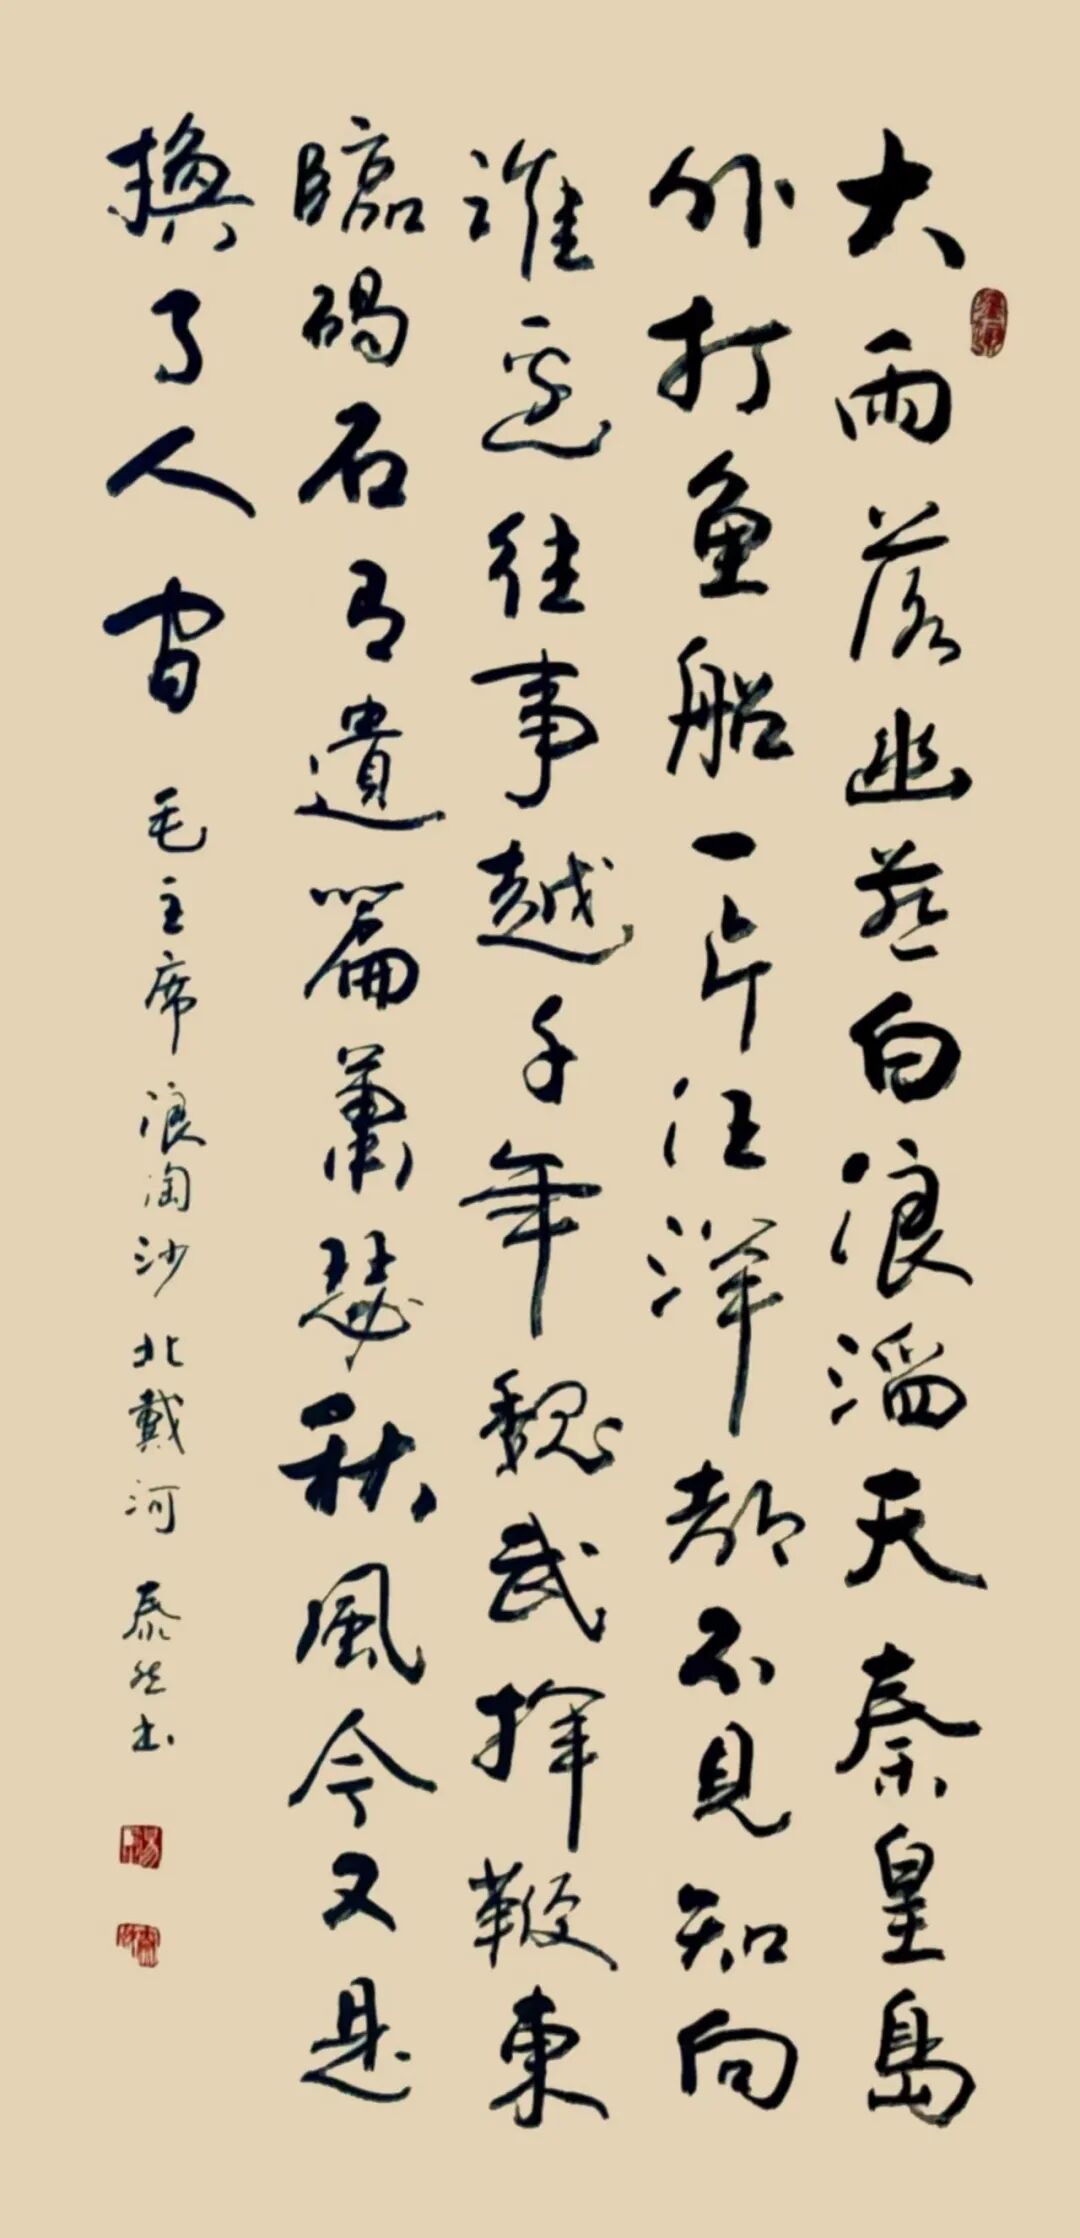 大雨落幽燕白浪滔天秦皇島
外打魚船一片汪洋都不見知向
誰邊往事越千年魏武揮鞭東
臨碣石有遺篇蕭瑟秋風今又是
換了人間 毛主席浪淘沙北戴河 泰然书